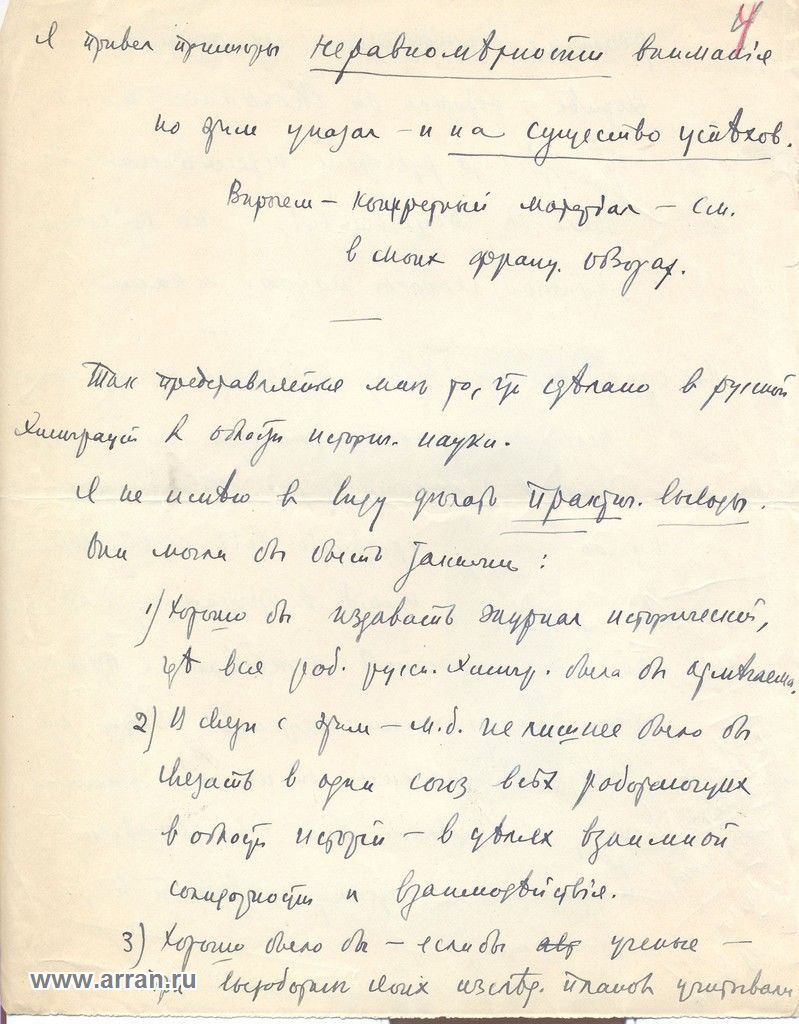 4
Я привел примеры неравномѣрности вниманія
но этим указал – и на существо успѣхов.
Впрочем – конкретный матерьал – см.
в моих франц. обзорах.
Так представляется мнѣ то, что сдѣлано в русской
эмиграціи в области историч. науки.
Я не имѣю в виду дѣлать практич. выводы.
Они могли бы быть такими:
1) Хорошо бы издавать журнал исторической,
гдѣ вся раб. русск. эмигр. была бы отмѣчаема.
2) В связи с этим – м.б. не лишнее было бы
связать в один союз всѣх работающих
в области исторіи – в цѣлях взаимной
солидарности и взаимодѣйствія.
3) Хорошо было бы – если бы ученые –
при выработкѣ своих изслѣд. планов учитывали
www.arran.ru